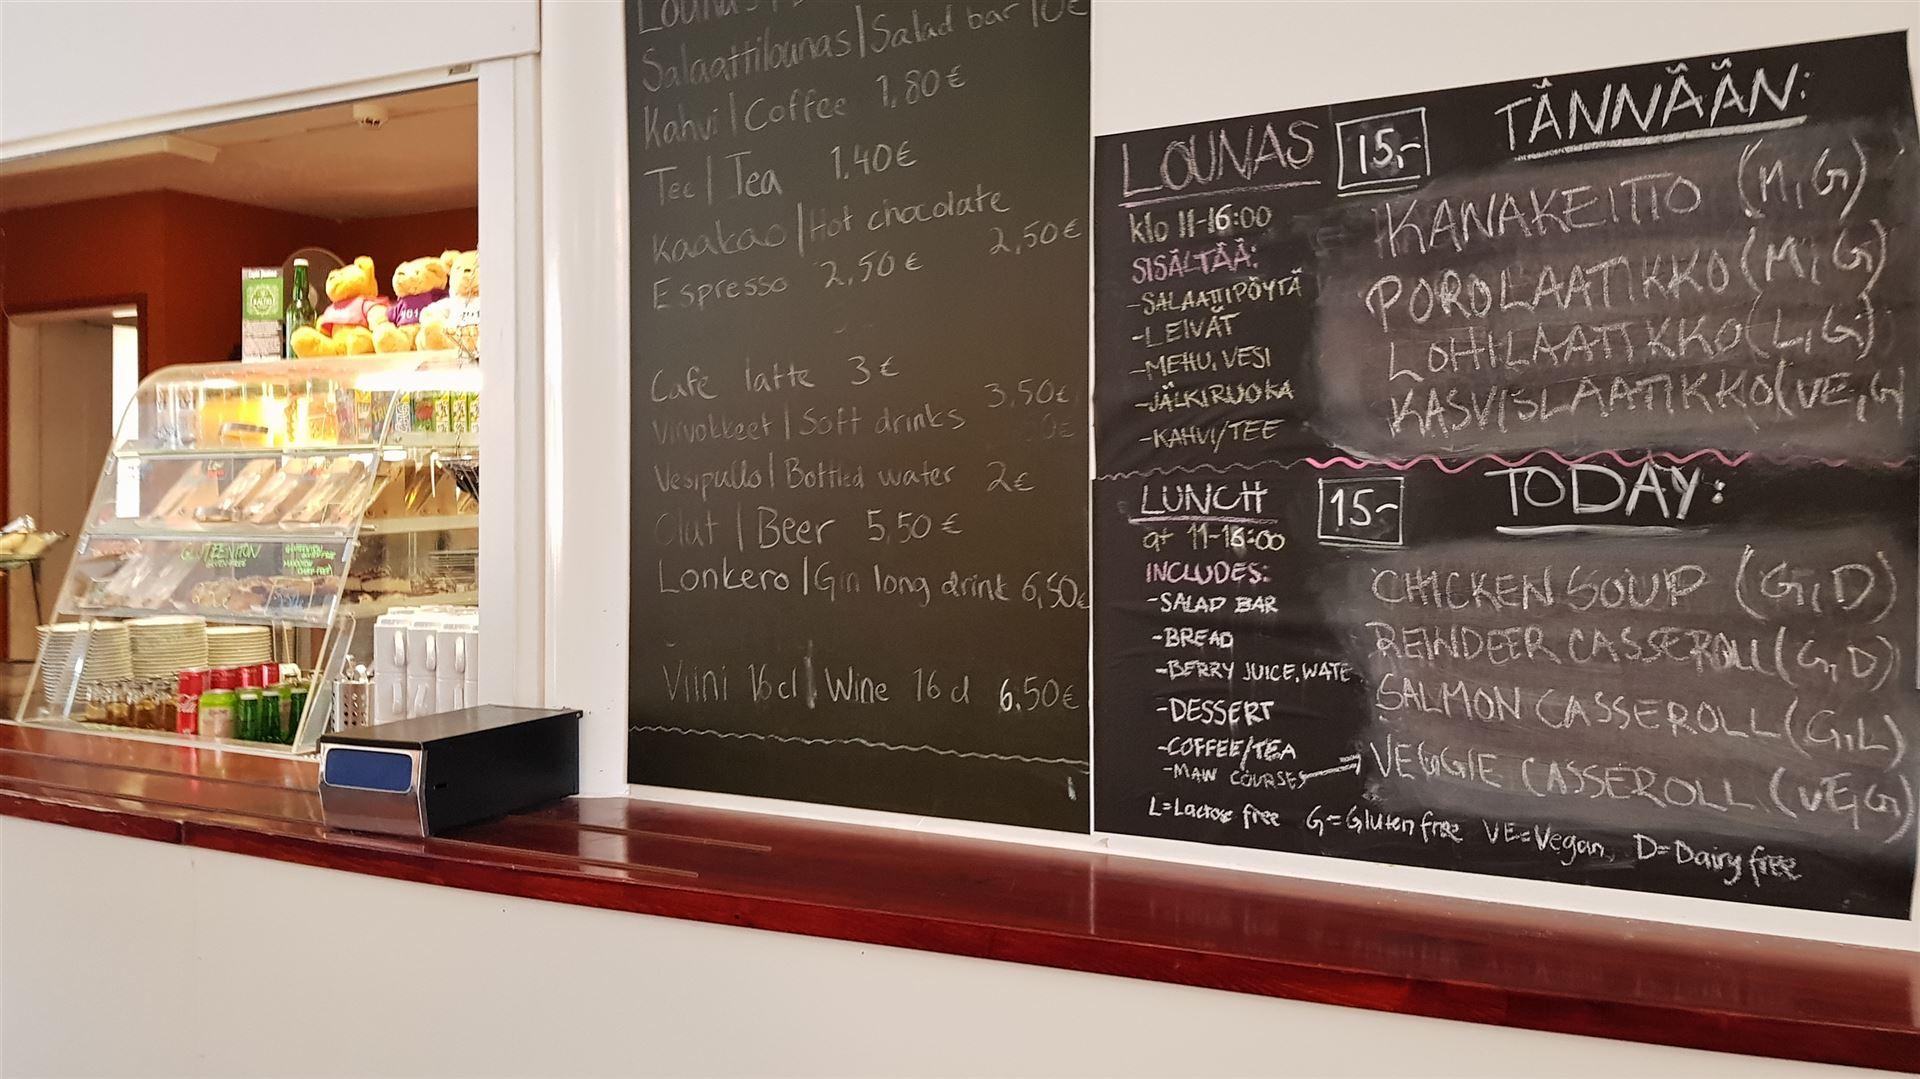 Salaattilounas | Salad bar 10€
Kahvi | Coffee 1,80€
Tee | Tea 1.40€
Kaakao | Hot chocolate 2,50€
Espresso 2,50€
Cafe latte 3€
Virvokkeet | Soft drinks 3,50€
Vesipullo | Bottled water 2€
Olut | Beer 5,50€
Lonkero | Gin long drink 6,50€
Viini 16cl | Wine 16 cl 6.50€
LOUNAS 15,-
klo 11-16:00
SISÄLTÄÄ:
-SALAATTIPÖYTÄ
-LEIVÄT
-MEHU, VESI
-JÄLKIRUOKA
-KAHVI/TEE
TÄNNÄÄN:
KANAKEITTO (M,G)
POROLAATIKKO (M,G)
LOHILAATIKKO (L,G)
KASVISLAATIKKO (VE,G
LUNCH 15-
at 11-16:00
INCLUDES:
-SALAD BAR
-BREAD
-BERRY JUICE, WATE
-DESSERT
-COFFEE/TEA
-MAIN COURSES
TODAY:
CHICKEN SOUP (G,D)
REINDEER CASSEROLL (G,D)
SALMON CASSEROLL (G,L)
VEGGIE CASSEROLL (VE,G)
L=Lactose free G=Gluten free VE=Vegan, D=Dairy free
GLUTEENITON